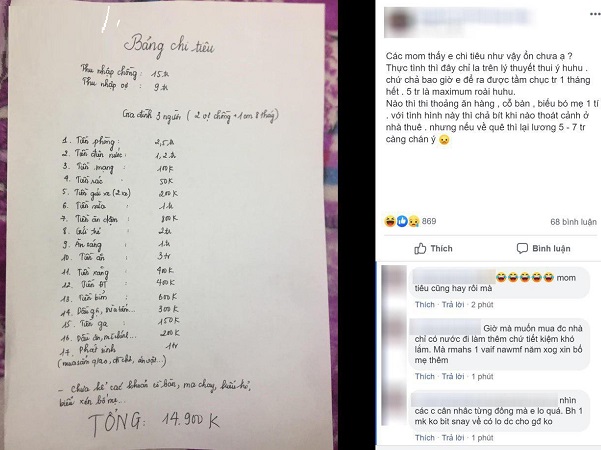 Bảng chi tiêu
Thu nhập chồng: 15tr
Thu nhập vợ: 9tr
Gia đình 3 người (2 vợ chồng + 1 con 8 tháng)
1. Tiền phòng: 2,5tr
2. Tiền điện nước: 1,2tr
3. Tiền mạng: 100k
4. Tiền rác: 50k
5. Tiền gửi xe (2 xe): 200k
6. Tiền sữa: 1tr
7. Tiền ăn dặm: 800k
8. Gửi trẻ: 2tr
9. Ăn sáng: 1tr
10. Tiền ăn: 3tr
11. Tiền xăng: 400k
12. Tiền ĐT: 400k
13. Tiền bỉm: 600k
14. Dầu gội, sữa tắm...: 300k
15. Tiền ga: 150k
16. Dầu ăn, mì chính...: 200k
17. Phát sinh: 1tr
(mua sắm q/áo, đi chơi, ăn vặt...)
- Chưa kể các khoản cỗ bàn, ma chay, hiếu hỉ,
biếu xén bố mẹ...
TỔNG: 14.900K
Các mom thấy e chi tiêu như vậy ổn chưa ạ ?
Thực tình thì đây chỉ la trên lý thuyết thui ý huhu .
chứ chả bao giờ e để ra được tầm chục tr 1 tháng
hết . 5 tr là maximum roài huhu.
Nào thi thi thoảng ăn hàng , cỗ bàn , biếu bó mẹ 1 tí
. với tình hình này thì chả bít khi nào thoát cảnh ở
nhà thuê . nhưng nếu về quê thì lại lương 5 - 7 tr
càng chán ý 😥
😆👍😢 869
68 bình luận
Thích
Bình luận
😂😂😂😂😂 mom
tiêu cũng hay rồi mà
Thích · Trả lời · 2 phút
Giờ mà muốn mua đc nhà
chỉ có nước đi làm thêm chứ tiết kiệm khó
lắm. Mà rmahs 1 vaif nawfm năm xog xin bố
mẹ thêm
Thích · Trả lời · 1 phút
nhìn
các c cân nhắc từng đồng mà e lo quá. Bh 1
mk ko bit snay về có lo dc cho gđ ko
Thích · Trả lời · 1 phút